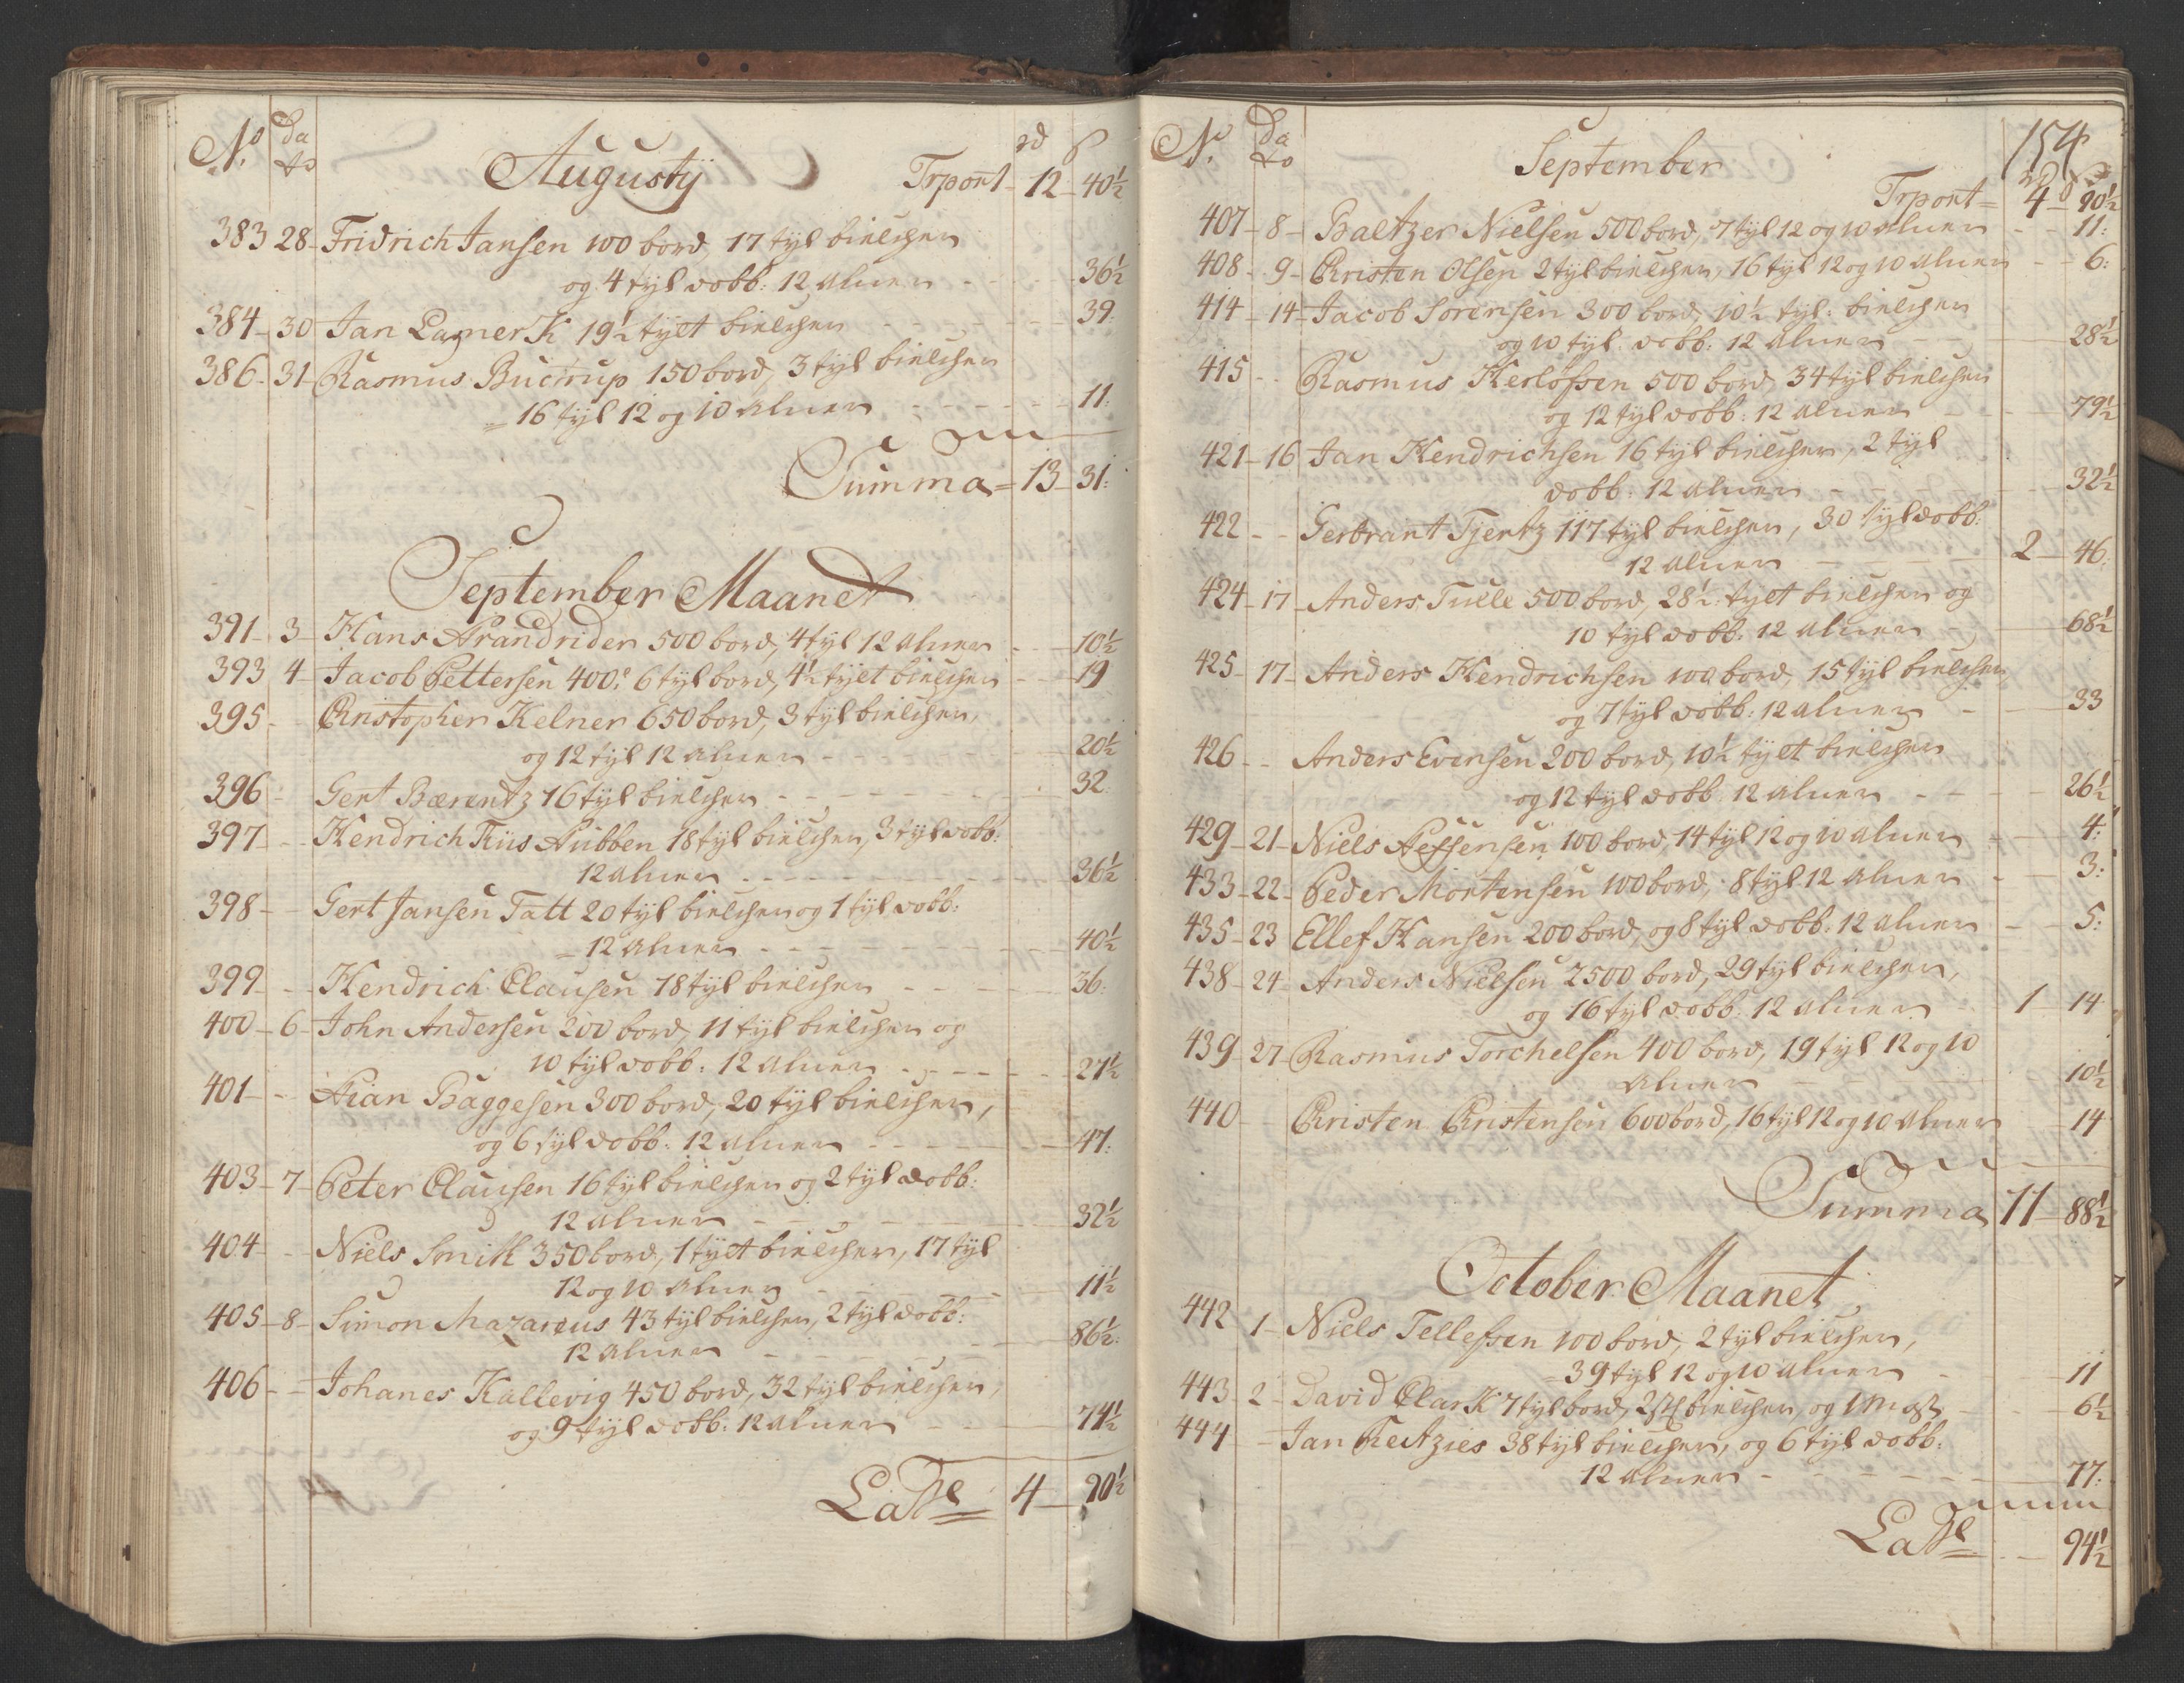 No Da to
Augustij
rd ß
Trport 12 40½
383 28 Fridrich Jansen 100 bord, 17 tyl bielcher
og 4 tyl dobb: 12 alner 36½
384 30 Jan Lamerk 19½ tylt bielcher 39
386 31 Rasmus Bucrup 150 bord, 3 tyl bielcher
16 tyl 12 og 10 alner 11:
Summa 13 31:
September Maanet
391 3 Hans Arandrider 500 bord, 4 tyl 12 alner 10½
393 4 Jacob Pettersen 400: 6 tyl bord, 4½ tylt bielcher 19
395 Christopher Kelner 650 bord, 3 tyl bielcher,
og 12 tyl 12 alner 20½
396 Gert Bærentz 16 tyl bielcher 32
397 Hendrich Tiis Aubben 18 tyl bielcher, 3 tyl dobb:
12 alner 36½
398 Gert Jansen Tatt 20 tyl bielcher og 1 tyl dobb:
12 alner 40½
399 Hendrich Clausen 18 tyl bielcher 36:
400 6 John Andersen 200 bord, 11 tyl bielcher og
10 tyl dobb: 12 alner 27½
401 Arian Baggesen 300 bord, 20 tyl bielcher,
og 6 tyl dobb: 12 alner 47:
403 7 Peter Clausen 16 tyl bielcher og 2 tyl dobb:
12 alner 32½
404 Niels Smith 350 bord, 1 tylt bielcher, 17 tyl
12 og 10 alner 11½
405 8 Simon Mazareus 43 tyl bielcher, 2 tyl dobb:
12 alner 86½:
406 Johanes Kallevig 450 bord, 32 tyl bielcher,
og 9 tyl dobb: 12 alner 74½
Latl 4 90½
No Da to
September
154
rd ß
Trport 4 90½
407 8 Baltzer Nielsen 500 bord, 7 tyl 12 og 10 alner 11:
408 9 Christen Olsen 2 tyl bielcher, 16 tyl 12 og 10 alner 6:
414 14 Jacob Sorensen 300 bord, 10½ tyl: bielcher
og 10 tyl dobb: 12 alner 28½
415 Rasmus Kerlofsen 500 bord, 34 tyl bielcher
og 12 tyl dobb: 12 alner 79½
421 16 Jan Hendrichsen 16 tyl bielcher, 2 tyl
dobb: 12 alner 32½
422 Gerbrant Tjertz 117 tyl bielcher, 30 tyl dobb:
12 alner 2 46:
424 17 Anders Tulle 500 bord, 28½ tylt bielcher og
10 tyl dobb: 12 alner 68½
425 17 Anders Hendrichsen 100 bord, 15 tyl bielcher
og 7 tyl dobb: 12 alner 33
426 Anders Evensen 200 bord, 10½ tylt bielcher
og 12 tyl dobb. 12 alner 26½
429 21 Niels 100 bord, 14 tyl 12 og 10 alner 4:
433 22 Peder Mortensen 100 bord, 8 tyl 12 alner 3:
435 23 Ellef Hansen 200 bord, og 8 tyl dobb: 12 alner 5:
438 24 Anders Nielsen 2500 bord, 29 tyl bielcher,
og 16 tyl dobb. 12 alner 1 14
439 27 Rasmus Torchelsen 400 bord, 19 tyl 12 og 10
alner 10½
440 Christen Christensen 600 bord, 16 tyl 12 og 10 alner 14
Summa 11 88½
October Maanet
442 1 Niels Tellefsen 100 bord, 2 tyl bielcher,
39 tyl 12 og 10 alner 11
443 2 David Clark 7 tyl bord, 2 st bielcher, og 1 Mast 6½
444 Jan Feitzies 38 tyl bielcher, og 6 tyl dobb:
12 alner 77:
Latl 94½